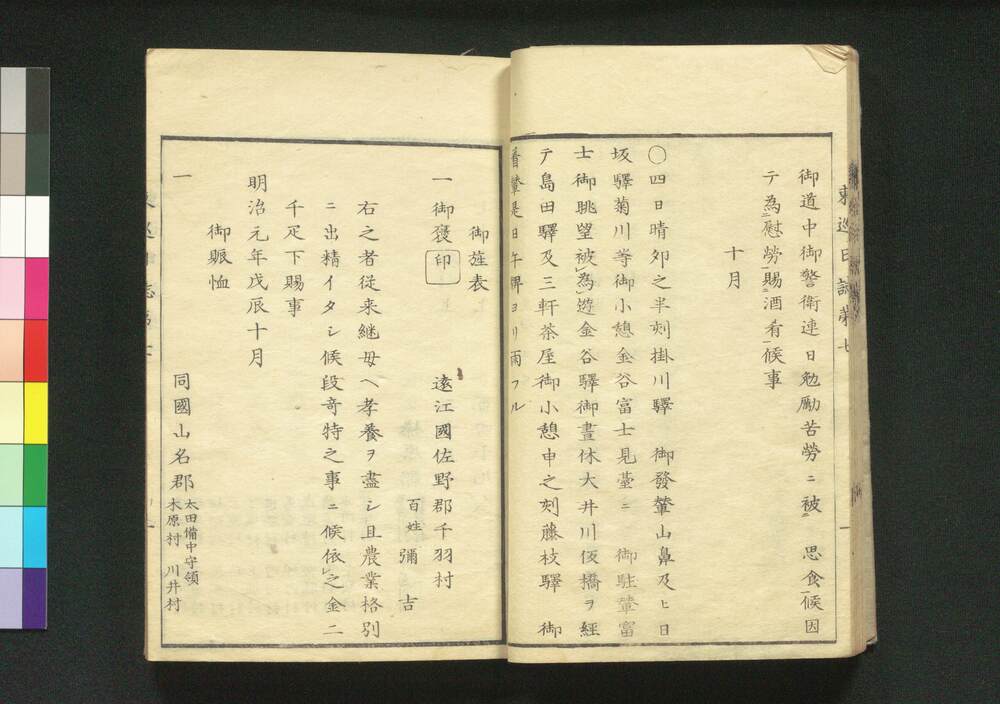 御道中御警衛連日勉勵苦勞ニ被 思食候因
テ為慰勞賜酒肴候事
十月
○四日晴夘之半刻掛川驛 御發輦山鼻及ヒ日
坂驛菊川等御小憩金谷富士見臺ニ 御駐輦富
士御眺望被為遊金谷驛御晝休大井川仮橋ヲ経
テ島田驛及三軒茶屋御小憩申之刻藤枝驛 御
着輦是日午牌ヨリ雨フル
御旌表
一御褒印 遠江國佐野郡千羽村
百姓 彌吉
右之者従来継母ヘ孝養ヲ盡シ且農業格別
ニ出精イタシ候段竒特之事ニ候依之金二
千疋下賜事
明治元年戊辰十月
御賑恤
一 同國山名郡 太田備中守領
木原村 川井村
東巡日誌第七